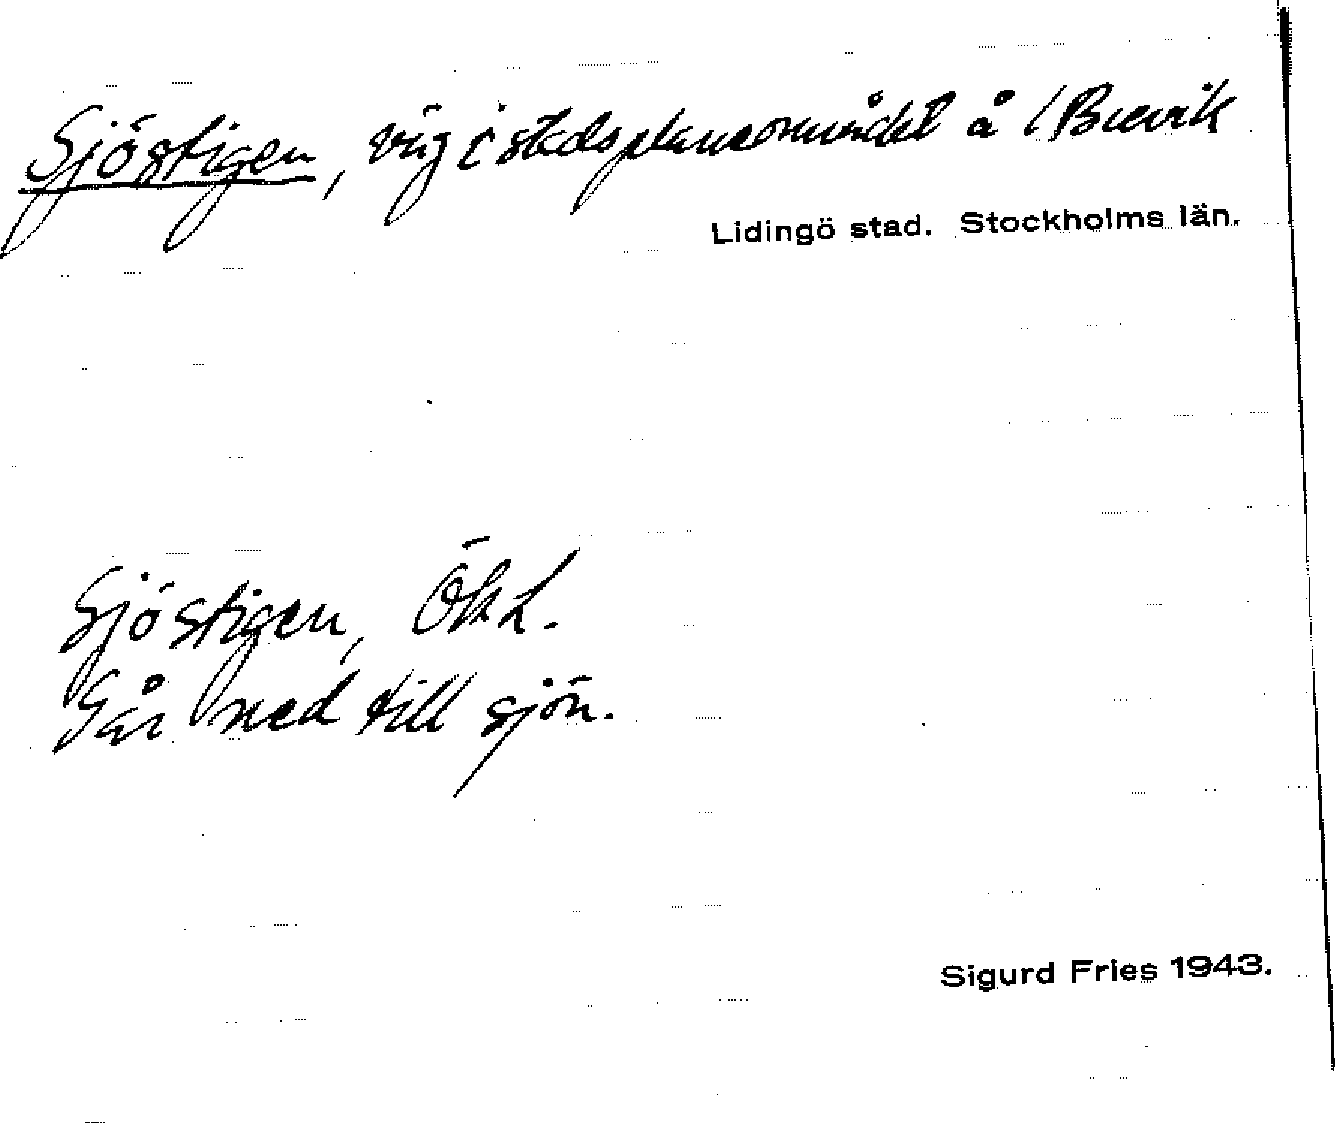 Sjöstigen, väg i stadsplaneområdet å / Brevik
Lidingö stad. Stockholms län.
Sjöstigen, ÖKL.
Går ned till sjön.
Sigurd Fries 1943.